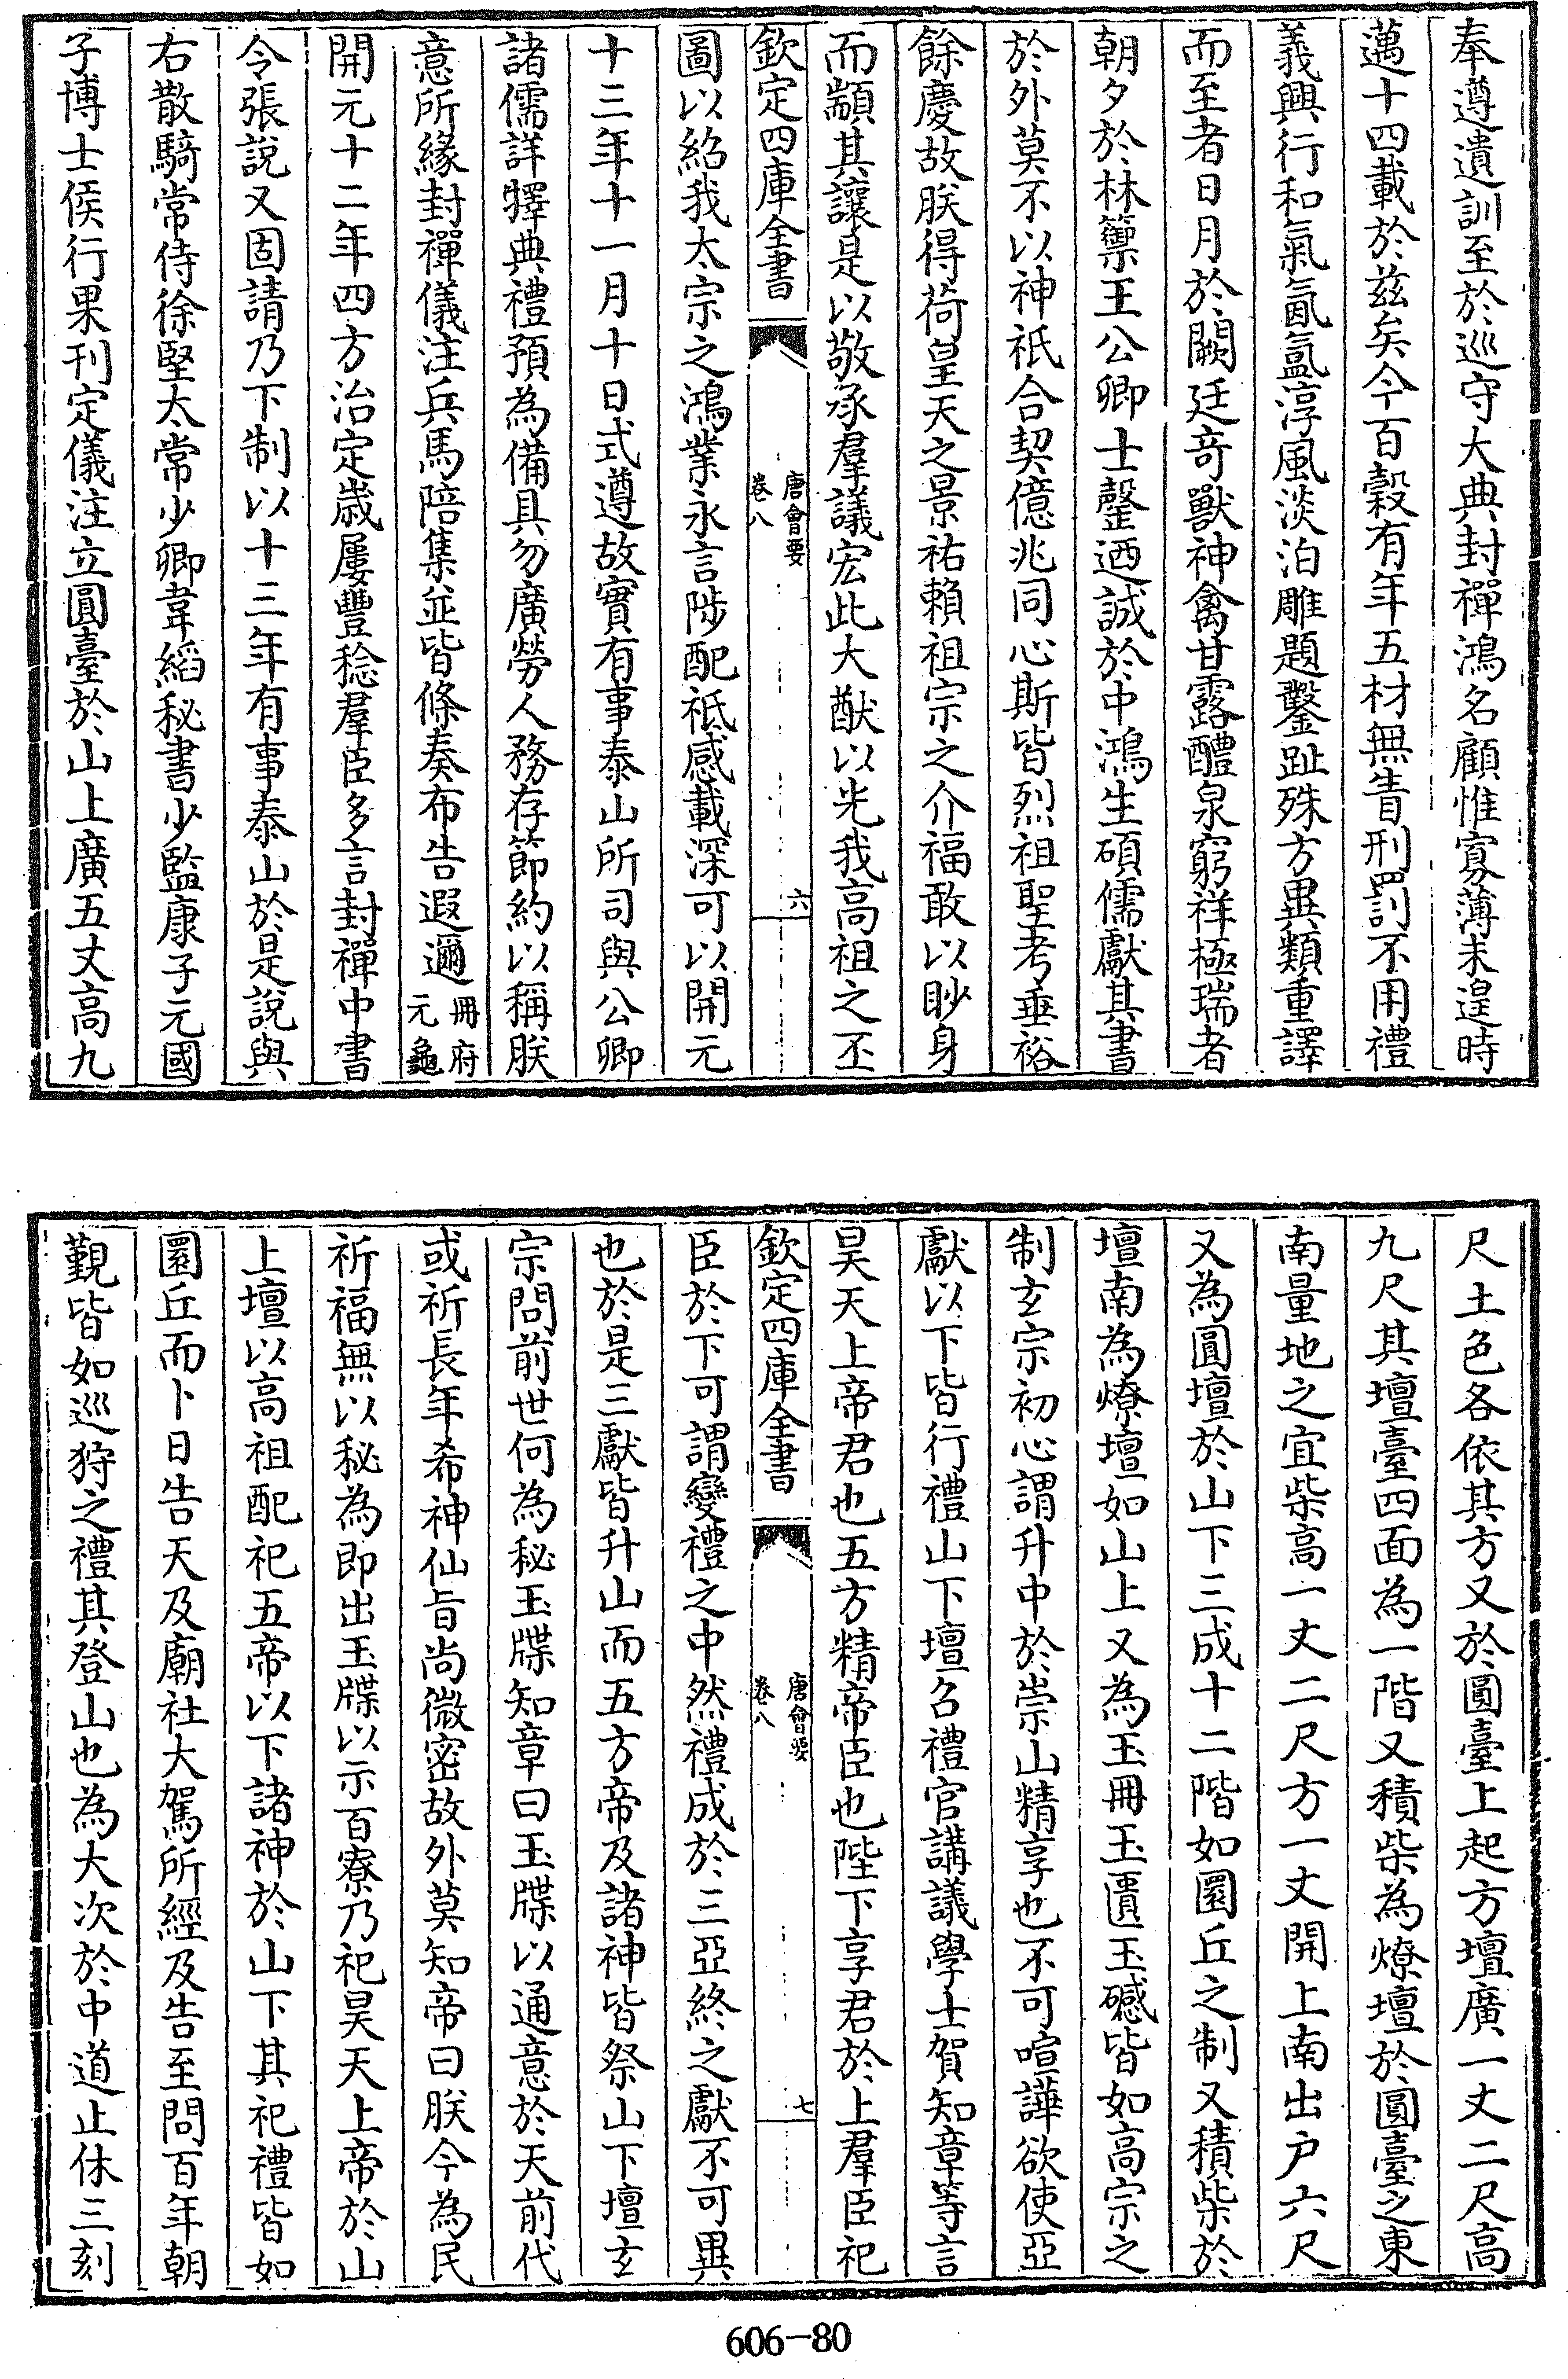 奉遵遺訓至於巡守大典封禪鴻名顧惟寡薄未遑時
邁十四載於兹矣今百穀有年五材無眚刑罰不用禮
義興行和氣氤氲淳風淡泊雕題鑿趾殊方異類重譯
而至者日月於闕廷奇獸神禽甘露醴泉窮祥極瑞者
朝夕於林籞王公卿士罄迺誠於中鴻生碩儒獻其書
於外莫不以神祇合契億兆同心斯皆烈祖聖考垂裕
餘慶故朕得荷皇天之景祐賴祖宗之介福敢以眇身
而顓其讓是以敬承羣議宏此大猷以光我高祖之丕
欽定四庫全書
唐會要
卷八
六
圖以紹我太宗之鴻業永言陟配祗感載深可以開元
十三年十一月十日式遵故實有事泰山所司與公卿
諸儒詳擇典禮預為備具勿廣勞人務存節約以稱朕
意所緣封禪儀注兵馬陪集並皆條奏布告遐邇冊府元龜
開元十二年四方治定歲屢豐稔羣臣多言封禪中書
令張說又固請乃下制以十三年有事泰山於是說與
右散騎常侍徐堅太常少卿韋縚秘書少監康子元國
子博士侯行果刊定儀注立圓臺於山上廣五丈高九
尺土色各依其方又於圓臺上起方壇廣一丈二尺高
九尺其壇臺四面為一階又積柴為燎壇於圓臺之東
南量地之宜柴高一丈二尺方一丈開上南出户六尺
又為圓壇於山下三成十二階如圜丘之制又積柴於
壇南為燎壇如山上又為玉冊玉匱玉䃭皆如高宗之
制玄宗初心謂升中於崇山精享也不可喧譁欲使亞
獻以下皆行禮山下壇召禮官講議學士賀知章等言
昊天上帝君也五方精帝臣也陛下享君於上羣臣祀
欽定四庫全書
唐會要
卷八
七
臣於下可謂變禮之中然禮成於三亞終之獻不可異
也於是三獻皆升山而五方帝及諸神皆祭山下壇玄
宗問前世何為秘玉牒知章曰玉牒以通意於天前代
或祈長年希神仙旨尚微密故外莫知帝曰朕今為民
祈福無以秘為即出玉牒以示百寮乃祀昊天上帝於山
上壇以高祖配祀五帝以下諸神於山下其祀禮皆如
圜丘而卜日告天及廟社大駕所經及告至問百年朝
覲皆如巡狩之禮其登山也為大次於中道止休三刻
606-80